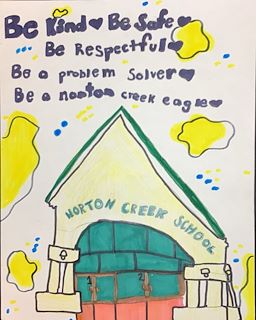 Be Kind♥ Be Safe♥
Be Respectful♥
Be a problem Solver♥
Be a norton creek eagle♥
NORTON CREEK SCHOOL